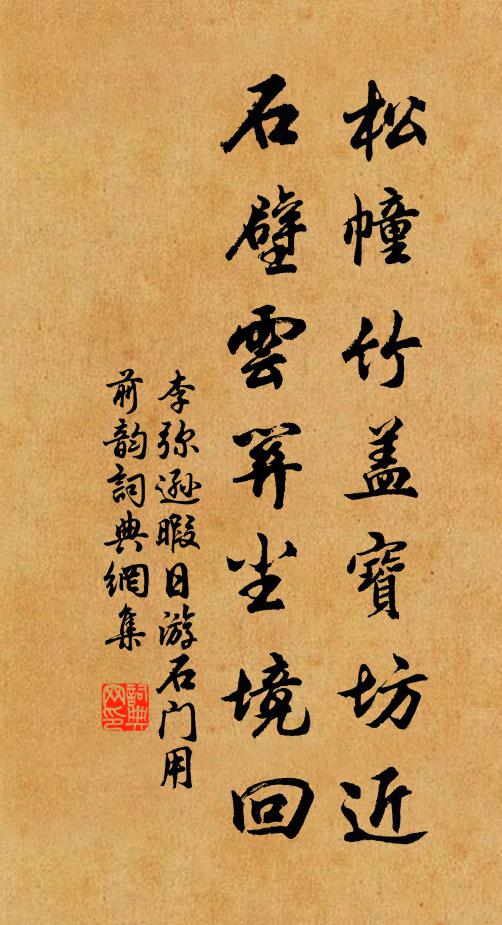 松幢竹盖寶坊近
石壁雲開尘境回
李弥逊暇日游石门用
前韵詞典網集
詞典网印